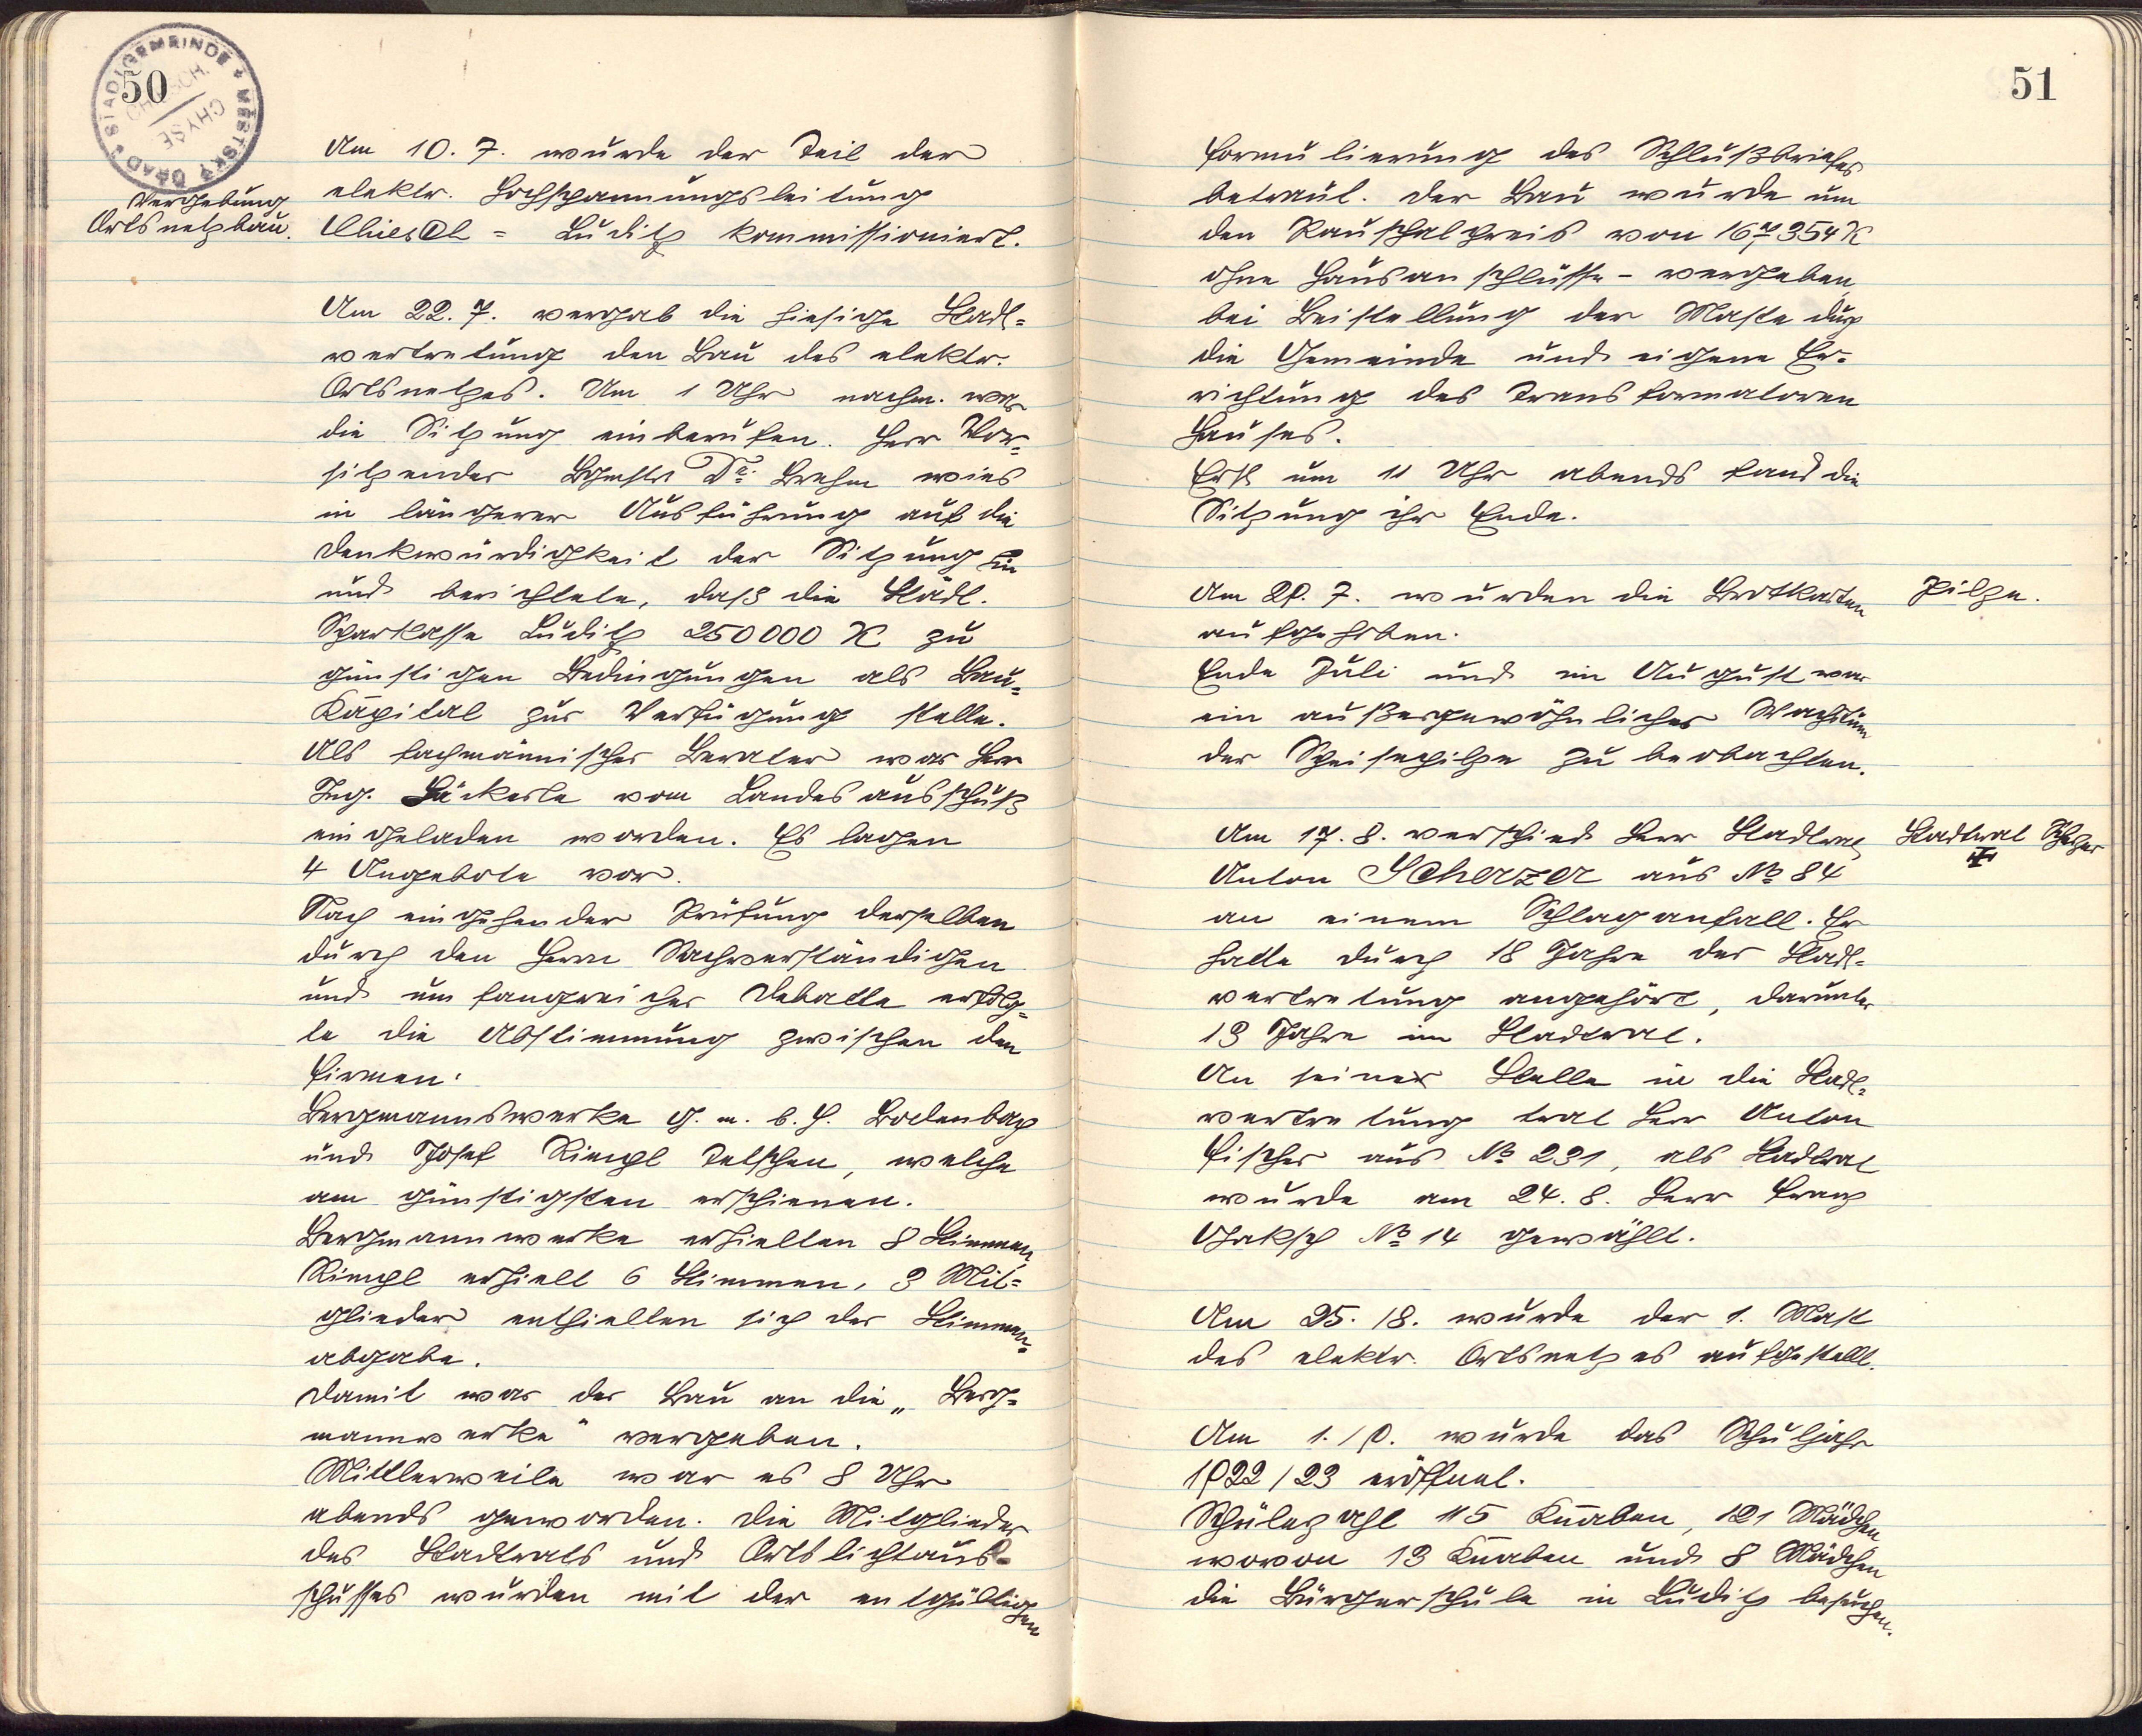 50
STADTGEMEINDE * MĚSTSKÝ ÚŘAD *
CHIESCH.
CHYŠE
Vergebung
Ortsnetzbau.
Am 10. 7. wurde der Teil der
elektr. Hochspannungsleitung
Chiesch = Luditz kommissioniert.
Am 22. 7. vergab die hiesige Stadt=
vertretung den Bau des elektr.
Ortsnetzes. Um 1 Uhr nachm. war
die Sitzung einberufen. Herr Vor=
sitzender Bgmstr Dr. Brehm wies
in längerer Ausführung auf die
Denkwürdigkeit der Sitzung hin
und berichtete, daß die Städt.
Sparkasse Luditz 250000 K zu
günstigen Bedingungen als Bau=
Kapital zur Verfügung stelle.
Als fachmännischer Berater war Herr
Ing. Häckerle vom Landesausschuß
eingeladen worden. Es lagen
4 Angebote vor.
Nach eingehender Prüfung derselben
durch den Herrn Sachverständigen
und umfangreicher Debatte erfolg=
te die Abstimmung zwischen den
Firmen:
Bergmannswerke G. m. b. H. Bodenbach
und Josef Rimpl Tetschen, welche
am günstigsten erschienen.
Bergmannwerke erhielten 8 Stimmen,
Rimpl erhielt 6 Stimmen, 3 Mit=
glieder enthielten sich der Stimmen=
abgabe.
Damit war der Bau an die „Berg=
mannwerke" vergeben.
Mittlerweile war es 8 Uhr
abends geworden. Die Mitglieder
des Stadtrats und Ortslichtaus=
schusses wurden mit der entgültigen
51
Formulierung des Schlußbriefes
betraut. Der Bau wurde um
den Pauschalpreis von 167354 K
ohne Hausanschlüsse - vergeben,
bei Beistellung der Maste durch
die Gemeinde und eigene Er=
richtung des Transformatoren
Hauses.
Erst um 11 Uhr abends fand die
Sitzung ihr Ende.
Am 29. 7. wurden die Brotkarten
aufgehoben.
Pilze.
Ende Juli und im August war
ein außergewöhnliches Wachstum
der Speisepilze zu beobachten.
Am 17. 8. verschied Herr Stadtrat
Stadtrat Scherzer
Anton Scherzer aus No 84
an einem Schlaganfall. Er
hatte durch 18 Jahre der Stadt=
vertretung angehört, darunter
13 Jahre im Stadtrat.
An seiner Stelle in die Stadt=
vertretung trat Herr Anton
Fischer aus No 231, als Stadtrat
wurde am 24. 8. Herr Franz
Jaksch No 14 gewählt.
Am 25. /8. wurde der 1. Mast
des elektr. Ortsnetzes aufgestellt.
Am 1. /9. wurde das Schuljahr
1922/23 eröffnet.
Schülerzahl 115 Knaben, 121 Mädchen
wovon 13 Knaben und 8 Mädchen
die Bürgerschule in Luditz besuchen.